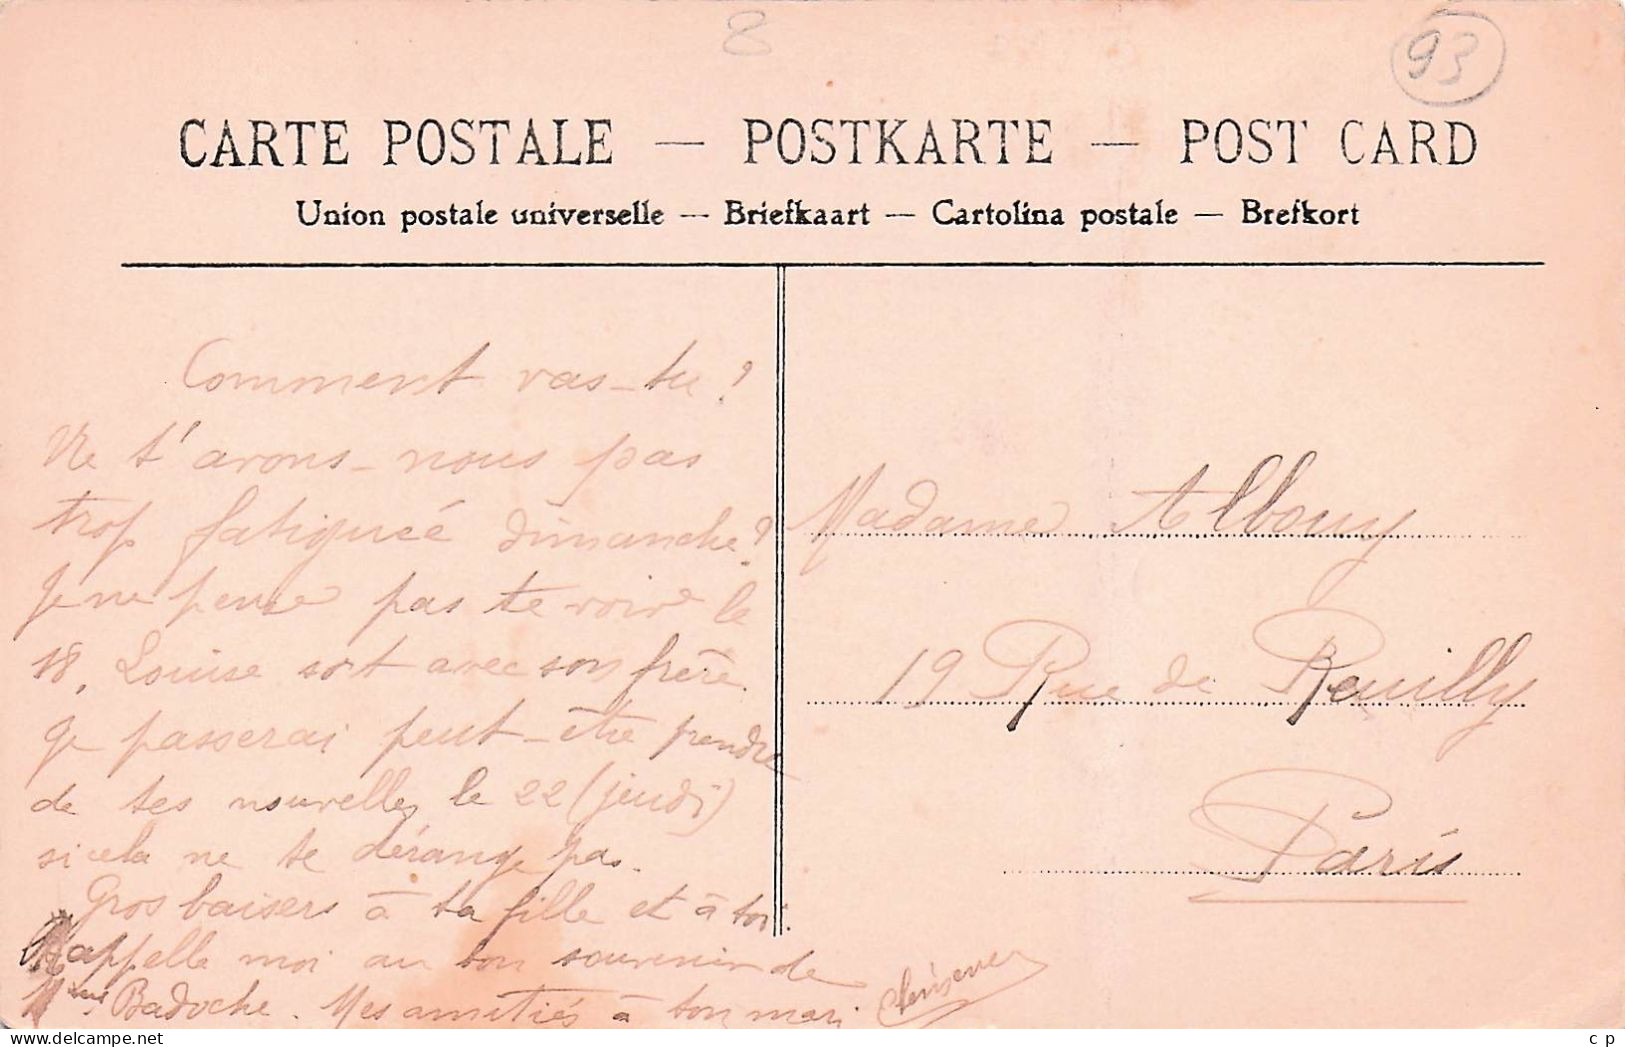 8
93
CARTE POSTALE — POSTKARTE — POST CARD
Union postale universelle — Briefkaart — Cartolina postale — Brefkort
Comment vas-tu ?
Ne t'avons-nous pas
trop fatiguée dimanche ?
Je ne pense pas te voir le
18, Louise sort avec son frère.
Je passerai peut-être prendre
de tes nouvelles le 22 (jeudi)
si cela ne te dérange pas.
Gros baisers à ta fille et à toi.
Rappelle moi au bon souvenir de
Mme Badoche. Mes amitiés à ton mari
Madame Albouy
19 Rue de Reuilly
Paris
c p